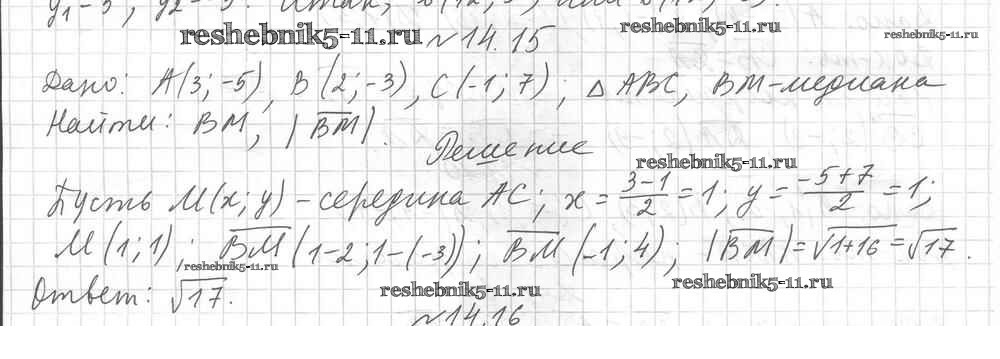 y₁ = 3, y₂ = -3.
reshebnik5-11.ru №14.15 reshebnik5-11.ru reshebnik5-11.ru
Дано: A(3; -5), B(2; -3), C(-1; 7); △ABC, BM - медиана
Найти: BM, |BM|.
Решение
reshebnik5-11.ru
Пусть M(x; y) - середина AC; x = (3-1)/2 = 1; y = (-5+7)/2 = 1;
M(1; 1); BM(1-2; 1-(-3)); BM(-1; 4); |BM| = √(1+16) = √17.
reshebnik5-11.ru
Ответ: √17. reshebnik5-11.ru reshebnik5-11.ru
№14.16